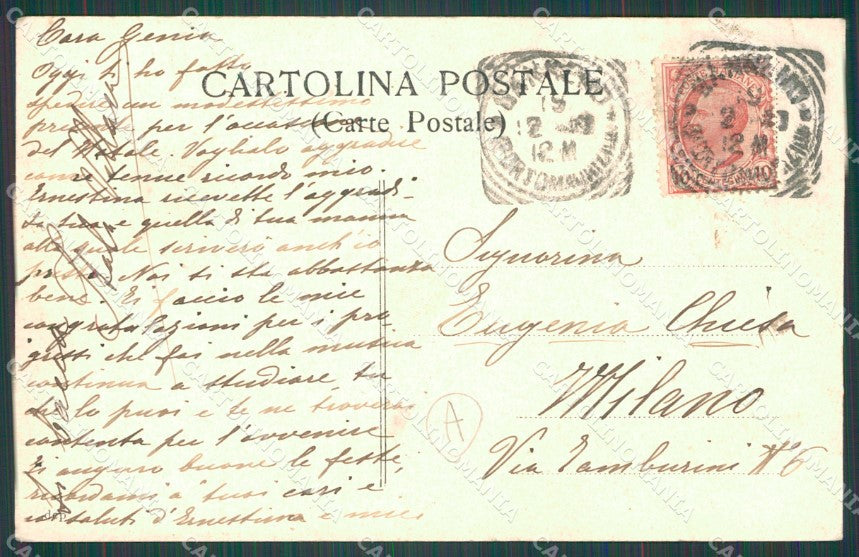 Cara Genia
Oggi ti ho fatto
spedire un modestissimo
per l'occasione
del Natale. Voglialo aggradire
come tenue ricordo mio.
Ernestina ricevette l'aggradi-
ta tua e quella di tua mamma
alla quale scriverò anch'io
presto. Noi si sta abbastanza
bene. Ti faccio le mie
congratulazioni per i pro-
gressi che fai nella musica
continua a studiare, tu
che lo puoi e te ne troverai
contenta per l'avvenire
Ti auguro buone le feste,
ricordami a' tuoi cari e
saluti d'Ernestina e miei
CARTOLINA POSTALE
(Carte Postale)
12 M
12 M
Signorina
Eugenia Chiesa
Milano
Via Tamburini N° 6
A
CARTOLINOMANIA